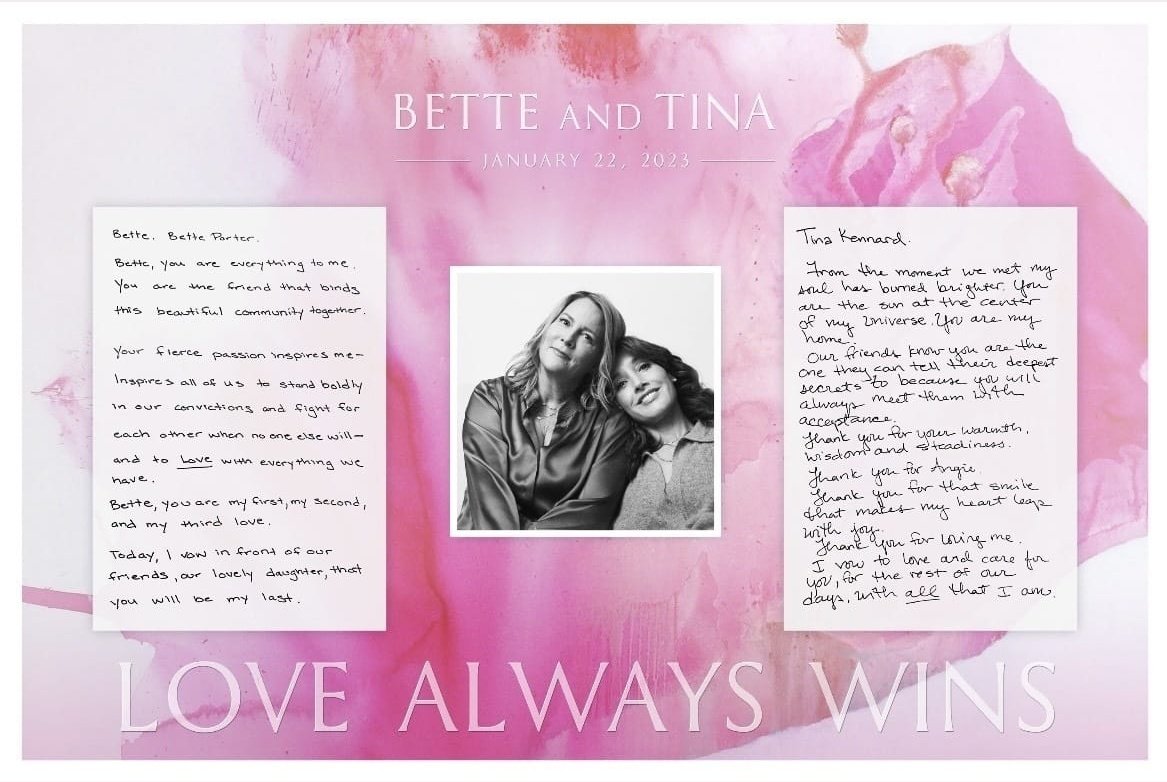 BETTE AND TINA
JANUARY 22, 2023
Bette. Bette Porter.
Bette, you are everything to me.
You are the friend that binds
this beautiful community together.
Your fierce passion inspires me—
Inspires all of us to stand boldly
in our convictions and fight for
each other when no one else will—
and to Love with everything we
have.
Bette, you are my first, my second,
and my third love.
Today, I vow in front of our
friends, our lovely daughter, that
you will be my last.
Tina Kennard.
From the moment we met my
soul has burned brighter. You
are the sun at the center
of my Universe. You are my
home.
Our friends know you are the
one they can tell their deepest
secrets to because you will
always meet them with
acceptance.
Thank you for your warmth,
wisdom and steadiness.
Thank you for Angie.
Thank you for that smile
that makes my heart leap
with joy.
Thank you for loving me.
I vow to love and care for
you, for the rest of our
days, with all that I am.
LOVE ALWAYS WINS